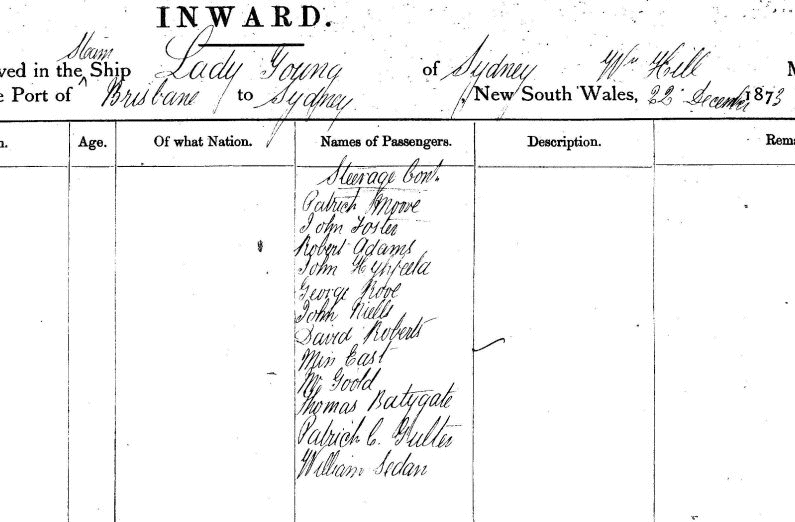 INWARD.
ved in the Steam Ship Lady Young of Sydney Wm Hill M
e Port of Brisbane to Sydney, New South Wales, 22 December 1873
n. Age. Of what Nation. Names of Passengers. Description. Rema
Steerage Cont.
Patrick Moore
John Foster
Robert Adams
John
George Rove
John Niells
David Roberts
Miss East
Mr Goold
Thomas Batygate
Patrick C. Gulter
William Sedan